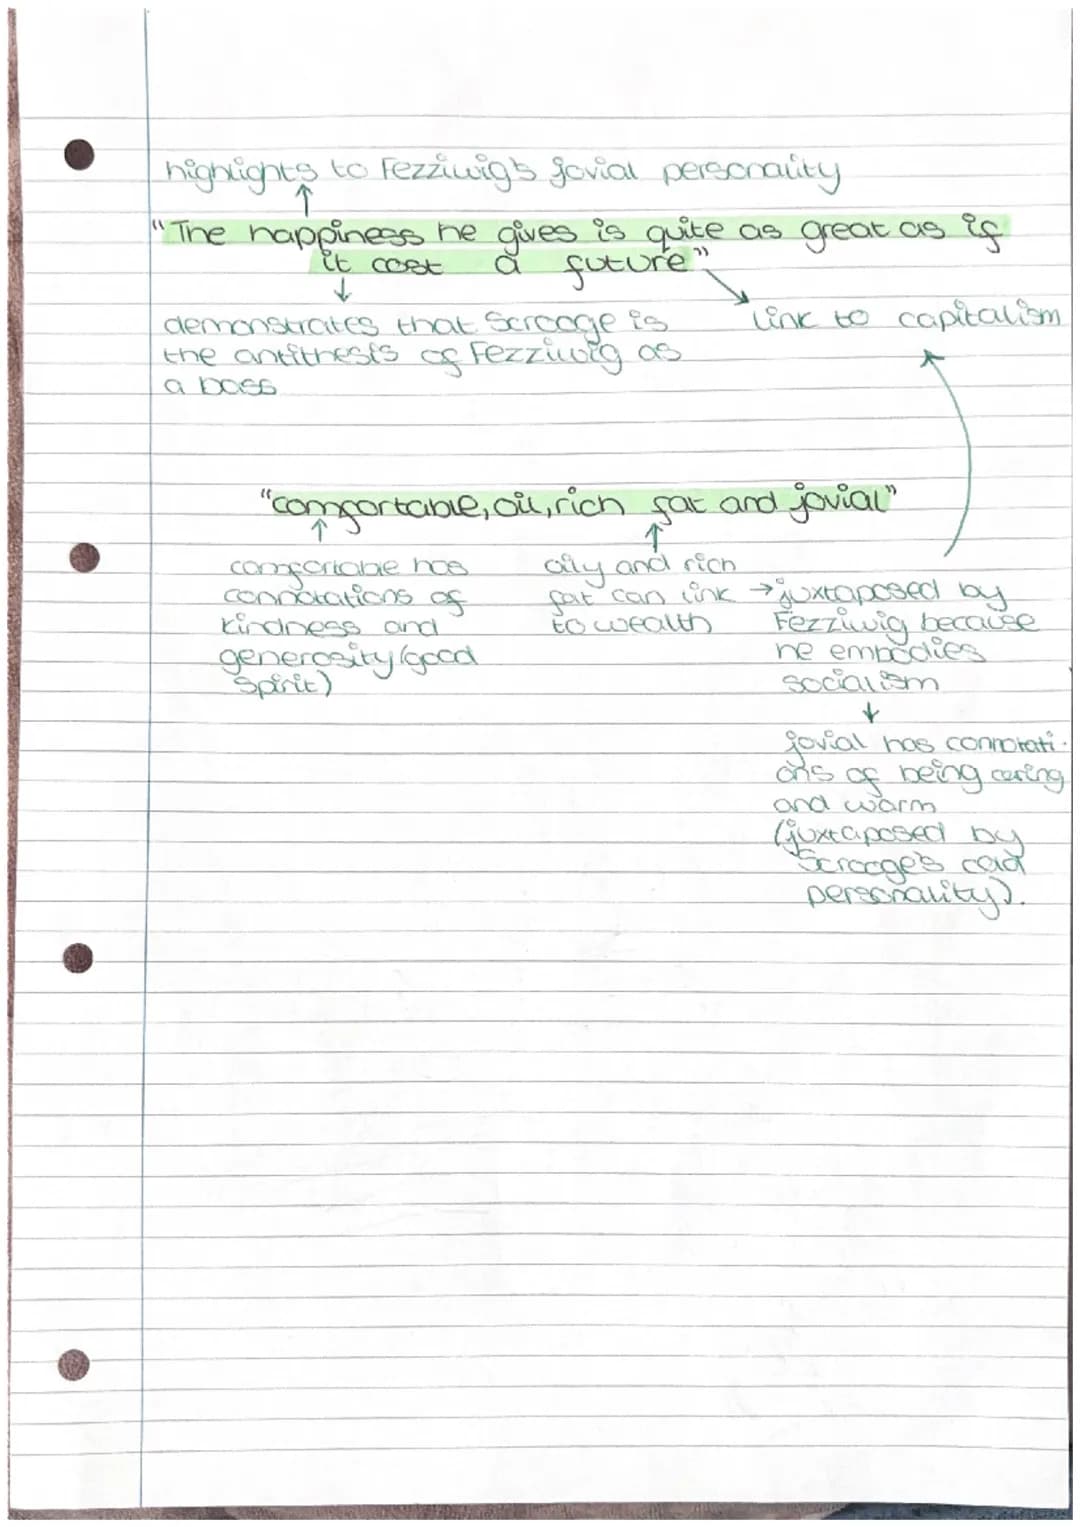 highlights to Fezziwig's jovial personality
"The happiness he gives is quite as great as if
it cost a future"
demonstrates that Scrooge is
the antithesis of Fezziwig as
a boss
link to capitalism
"comfortable, oil, rich fat and jovial"
comfortable has
connotations of
kindness and
generosity (good
spirit)
oily and rich
fat can link →
to wealth
juxtaposed by
Fezziwig because
he embodies
socialism
jovial has connotati-
ons of being caring
and warm
(juxtaposed by
Scrooge's cold
personality).